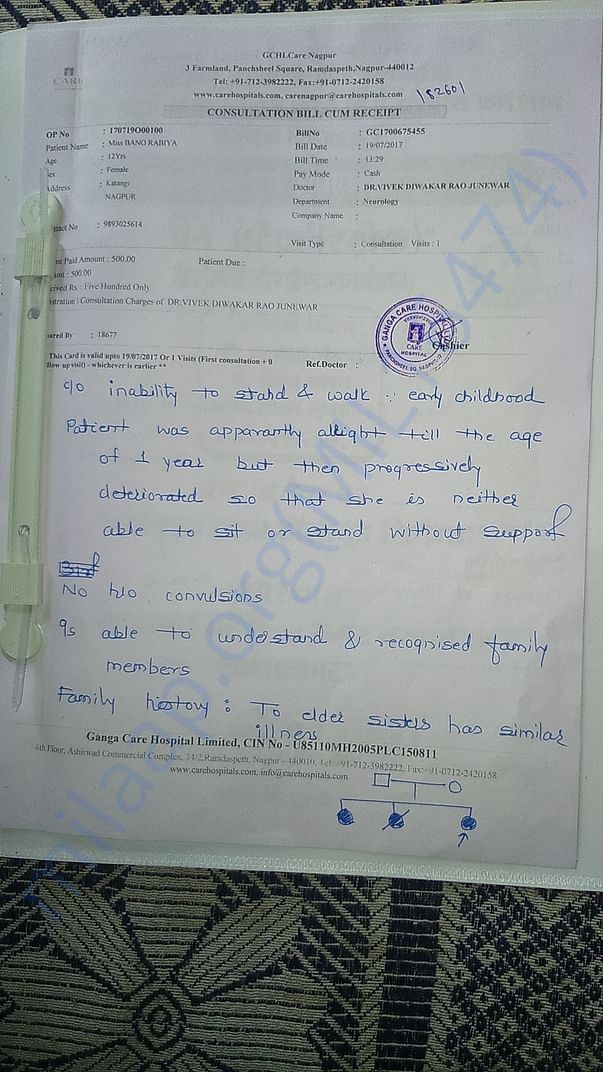 GCHLCare Nagpur
3 Farmland, Panchsheel Square, Ramdaspeth,Nagpur-440012
Tel: +91-712-3982222, Fax:+91-0712-2420158
www.carehospitals.com, carenagpur@carehospitals.com
182601
CARE
CONSULTATION BILL CUM RECEIPT
OP No : 170719O00100 BillNo : GC1700675455
Patient Name : Miss BANO RABIYA Bill Date : 19/07/2017
Age : 12Yrs Bill Time : 13:29
Sex : Female Pay Mode : Cash
Address : Katangi Doctor : DR.VIVEK DIWAKAR RAO JUNEWAR
NAGPUR Department : Neurology
Company Name :
tact No : 9893025614
Visit Type : Consultation Visits : 1
nt Paid Amount : 500.00 Patient Due :
unt : 500.00
eived Rs. : Five Hundred Only
istration \ Consultation Charges of DR.VIVEK DIWAKAR RAO JUNEWAR
GANGA CARE HOSPITAL
CARE
HOSPITAL
PANCHSHEEL SQ. NAGPUR
Cashier
ared By : 18677
This Card is valid upto 19/07/2017 Or 1 Visits (First consultation + 0
llow up visit) - whichever is earlier ** Ref.Doctor :
c/o inability to stand & walk ∵ early childhood
Patient was apparantly allright till the age
of 1 year but then progressively
deteriorated so that she is neither
able to sit or stand without support
No h/o convulsions
Is able to understand & recognised family
members
Family history : To elder sisters has similar
illness
Ganga Care Hospital Limited, CIN No - U85110MH2005PLC150811
4th Floor, Ashirwad Commercial Complex, 34/2,Ramdaspeth, Nagpur - 440010, Tel: +91-712-3982222, Fax:+91-0712-2420158
www.carehospitals.com, info@carehospitals.com